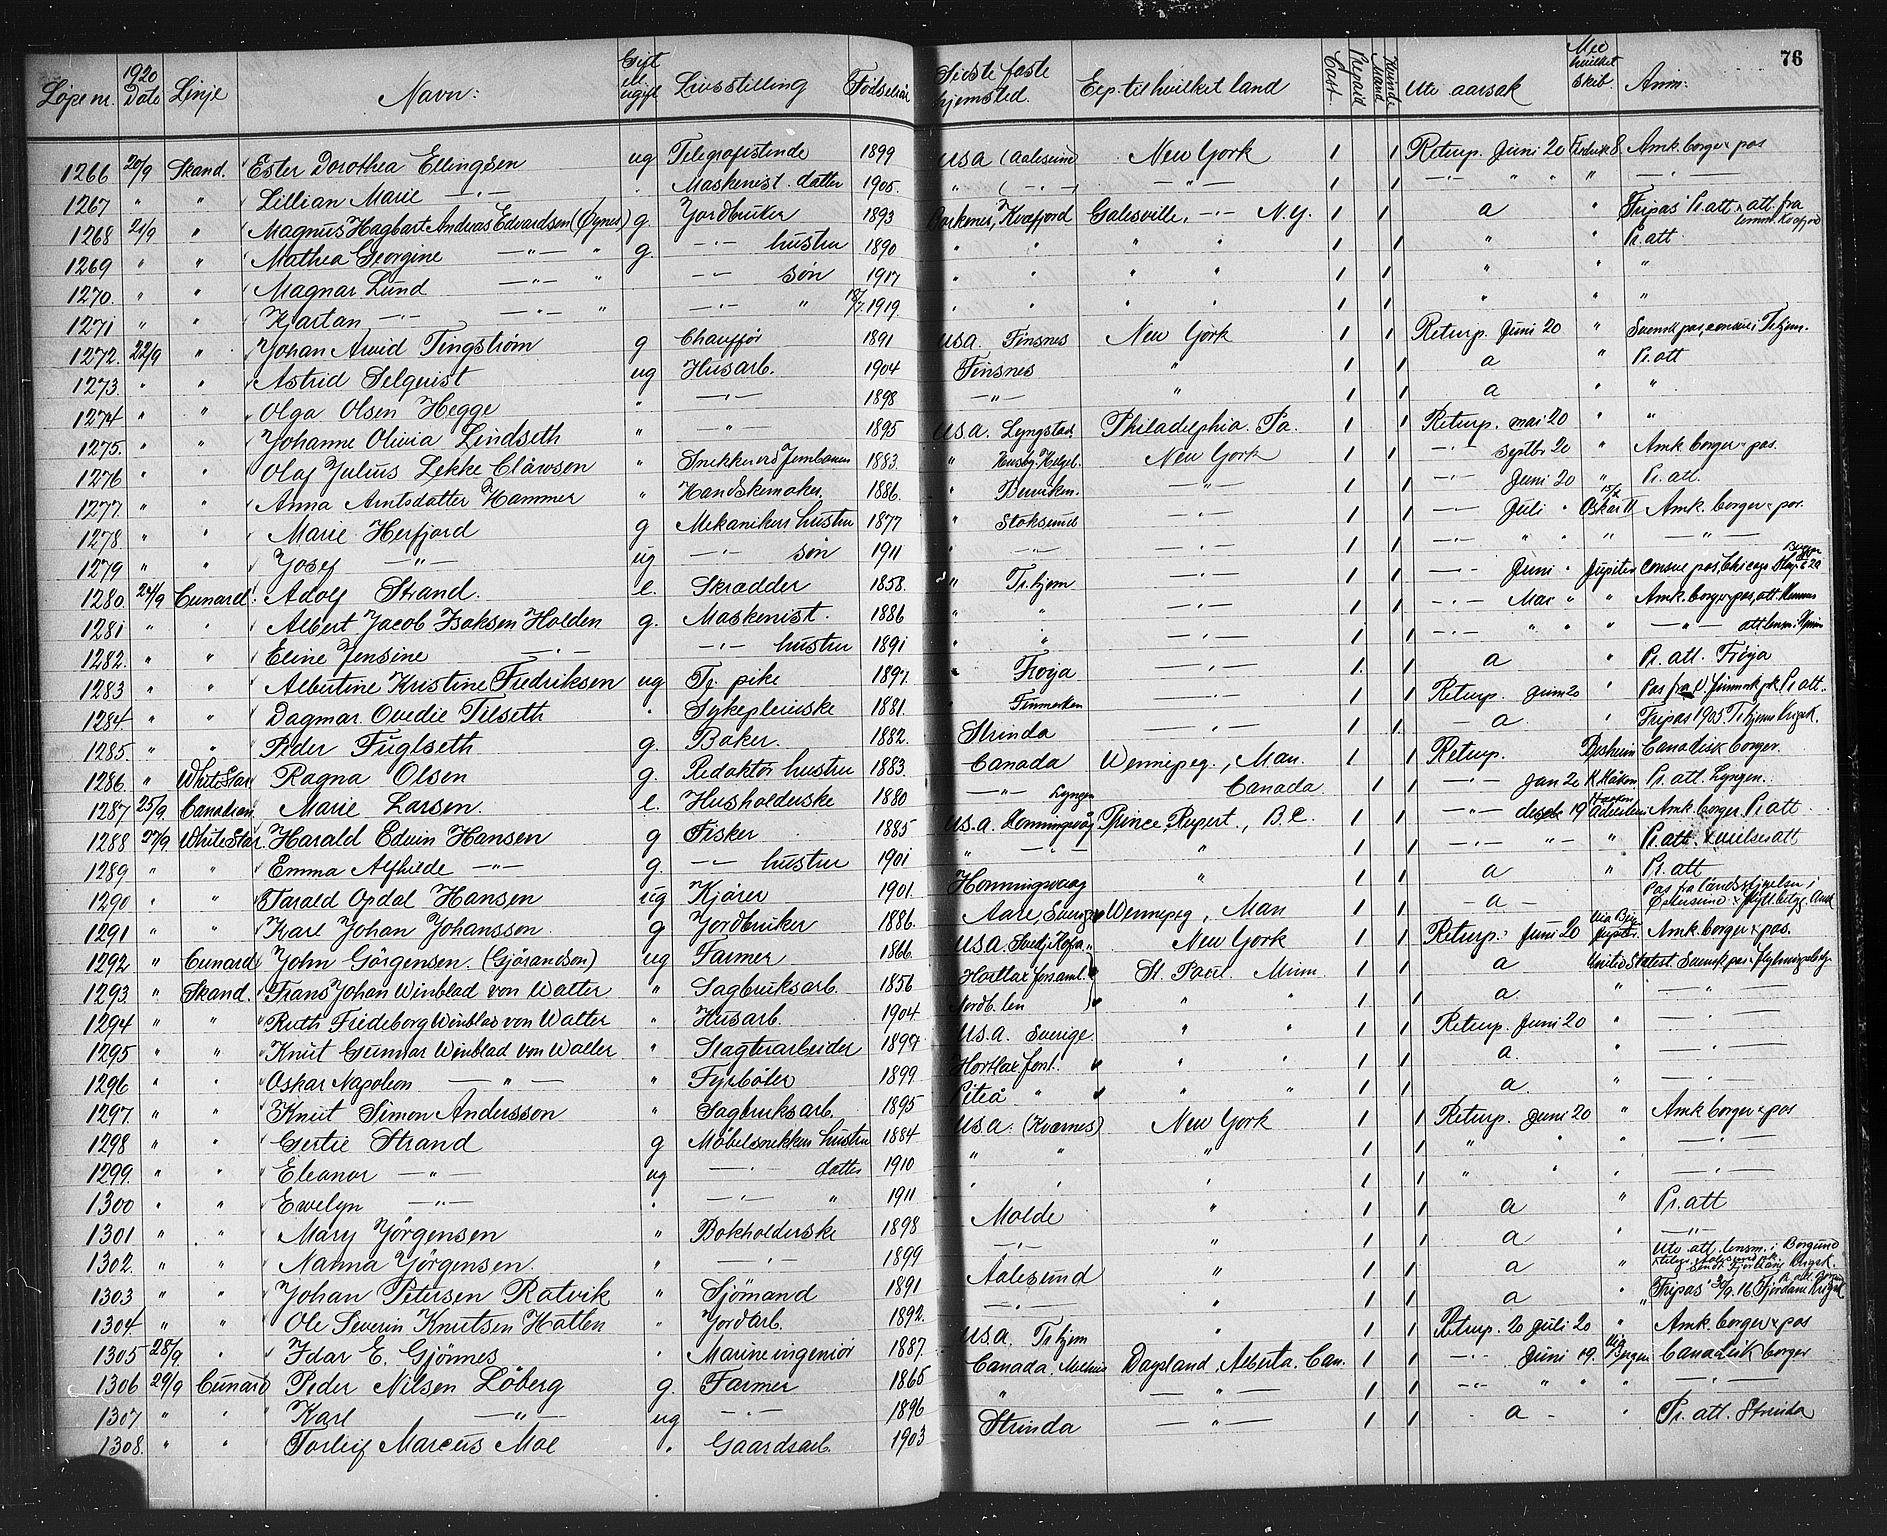 76
Løpe nr. 1920 Date Linje Navn: Gift el. ugift Livsstilling Fødselsaar Sidste faste hjemsted. Exp. til hvilket land Ute aarsak Med hvilket Skib. Anm:
1266 20/9 Skand. Ester Dorothea Ellingsen ug Telegrafistinde 1899 USA (Aalesund New York 1 1 Returp. Juni 20 Amk. borger pas
1267 " " Lillian Marie -"- Maskenist datter 1905 " (-"-) -"- 1 1 -"- " " " -"-
1268 21/9 " Magnus Hagbart Andreas Edvardsen (Øynes) g. Jordbruker 1893 Kvæfjord Galesville, -"- N.Y. 1 1 a " Fripas Pr. att. att. fra lensm. Kvæfjord
1269 " " Mathea Georgine -"- " g. -"- hustru 1890 " " " " 1 1 " " Pr. att
1270. " " Magnar Lund -"- " -"- søn 1917 " " " " 1 1 " " "
1271 " " Kjartan -"- -"- " -"- " 1919. " " " " 1 1 " " "
1272. 22/9 " Johan Arvid Tingstrøm g Chauffør 1891 USA. Finsnes New York 1 1 Returp. Juni 20 " Svensk pas, consul i Tr.hjem.
1273. " " Astrid Selquist ug Husarb. 1904 Finsnes " 1 1 a " Pr. att
1274 " " Olga Olsen Hegge " -"- 1898 -"- " 1 1 a " "
1275. " " Johanne Olivia Lindseth " -" 1895 USA. Lyngstad. Philadelphia. Pa. 1 1 Returp. mai 20 " "
1276 " " Olaf Julius Lekke Clawson " Snekker ved Jernbanen 1883. " New York 1 1 -"- Septbr 20 " Amk borger pas.
1277 " " Anna Arntsdatter Hammer " Handskemaker 1886. " -"- 1 1 -"- Juni 20 " Pr. att.
1278 " " Marie Herfjord g Mekanikers hustru 1877 " Stoksund -"- 1 1 -"- Juli " Oskar II Amk. borger pas.
1279 " " Josef -"- ug -"- søn 1911 " -"- -"- 1 1 -"- " " " -"-
1280. 24/9 Cunard. Adolf Strand. e. Skrædder 1858. " Tr.hjem -"- 1 1 -"- Juni " Jupiter Consul pas, Chicago
1281 " " Albert Jacob Isaksen Holden g. Maskenist. 1886 " " -"- 1 1 -"- Mai " " Amk. borger pas, att.
1282. " " Eline Jensine -"- -"- hustru 1891 " " -"- 1 1 -"- " " " -"- att lensm.
1283 " " Albertine Kristine Fredriksen ug Tj. pike 1897. " Frøya -"- 1. 1 a " Pr. att. Frøya
1284. " " Dagmar Ovedie Tilseth " Sykepleierske 1881. " Finmarken -"- 1 1 Returp. Juni 20 " Pas fra Pr. att.
1285. " " Peder Fuglseth g. Baker. 1882. Strinda -"- 1 1 -a- " Fripas 1905 Tr.hjems
1286. " White Star Ragna Olsen g. Redaktør hustru 1883. Canada Wennipeg, Man. 1 1 Returp. Canadisk borger.
1287 25/9 Canadian Marie Larsen. e. Husholderske 1880 -"- Lyngen Canada 1 1 -"- Jan 20 Pr. att. Lyngen.
1288 27/9 White Star Harald Edvin Hansen g Fisker 1885 USA. Honningsvåg Prince Rupert., B.C. 1 1 -"- desbr 19 Amk. borger Pr. att
1289 " " Emma Alfhilde -"- g. -"- hustru 1901 " -"- " 1 1 -"- " - " Pr. att. vielsesatt
1290 " " Tarald Opdal Hansen ug Kjører 1901. Honningsvaag " 1 1 a " Pr. att
1291 " " Karl Johan Johansson. g Jordbruker 1886. Aare, Sverige Wennipeg, Man 1 1 -a-
1292 " Cunard John Görgensen. (Gjörandson) ug Farmer 1866. USA. New York 1 1 Returp. Juni 20 Amk. borger pas.
1293 " Skand. Frans Johan Winblad von Walter " Sagbruksarb. 1856 Hortlax forsaml. St. Paul. Minn 1 1 a United States Svensk pas
1294 " " Ruth Fredeborg Winblad von Walter " Husarb. 1904 Nordb. len " " 1 1 a " -"-
1295 " " Knut Gunnar Winblad von Walter " Slagteriarbeider 1897 USA. Sverige. " " 1 1 Returp. Juni 20 " -"-
1296 " " Oskar Napoleon -"- " Fyrbøter 1899 Hortlax fors. " " 1 1 a. " -"-
1297. " " Knut Simon Andersson " Sagbruksarb. 1895 Piteå " " " 1 1 a " -"-
1298 " " Gertie Strand g Møbelsnekker hustru 1884 USA. (Kvernes) New York 1 1 Returp. Juni 20 " Amk borger pas
1299. " " Eleanor -"- ug -"- datter 1910 " " " 1 1 " " " -"-
1300 " " Ewelyn -"- " -"- " 1911 " " " 1 1 " " " -"-
1301 " " Mary Jörgensen " Bokholderske 1898 Molde " 1 1 a " Pr. att
1302. " " Nanna Jörgensen. " -"- 1899 -"- " 1 1 a -"-
1303 " " Johan Petersen Ratvik " Sjömand 1891 Aalesund " 1 1 a " Utv. att. lensm. i Borgund
1304. " " Ole Severin Knutsen Hatlen " Jordarb. 1892. -"- " 1 1 a " Fripas 30/9 16
1305 28/9 " Idar E. Gjönnes " Marineingeniör 1887. USA. Tr.hjem " 1 1 Returp. 20 Juli 20 " Amk borger pas
1306 29/9 Cunard Peder Nilsen Löberg g. Farmer 1865 Canada, Daysland Alberta. Can. 1 1 -"- Juni 19. via Bergen Canadisk borger
1307 " " Karl -"- ug -"- 1896 " -"- 1 1 -"- " " " -"-
1308. " " Torleif Marcus Moe " Gaardsarb. 1903 Strinda -"- 1 1 -a- " Pr. att. Strinda